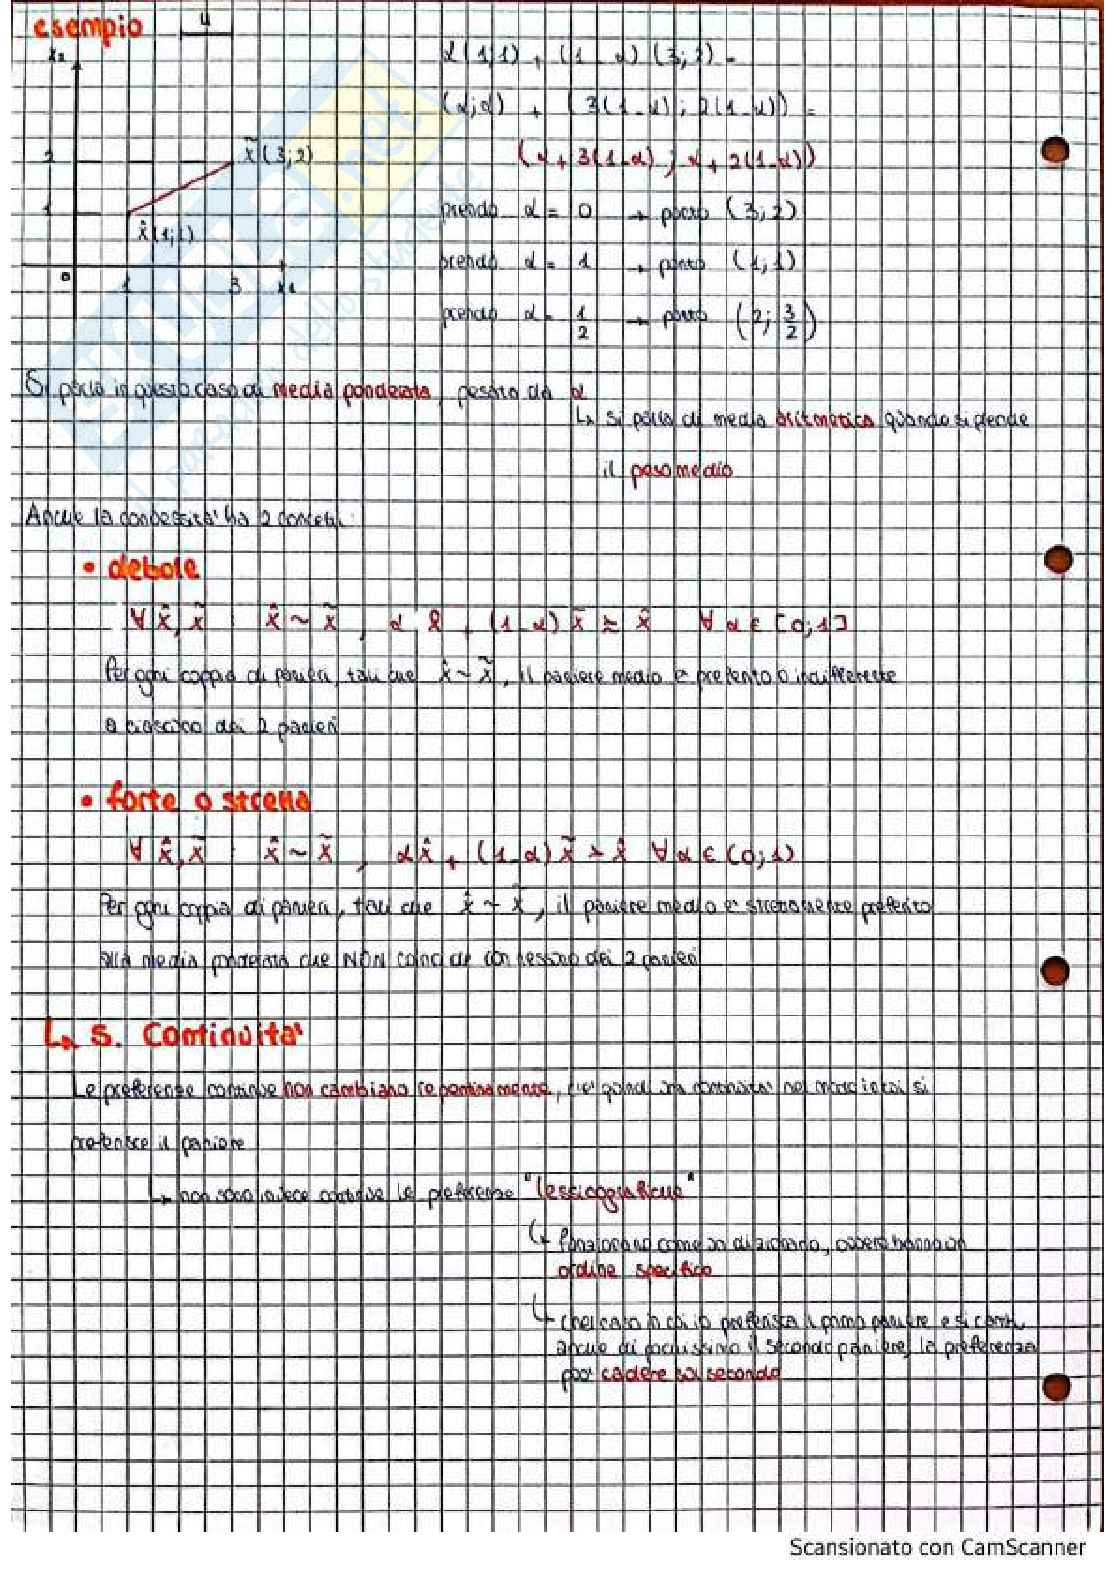 esempio 4
x₂
α(1;1) + (1-α)(3;2) =
(α;α) + (3(1-α); 2(1-α)) =
2
x̃(3;2)
(α + 3(1-α); α + 2(1-α))
1
x̂(1;1)
prendo α = 0 → punto (3;2)
prendo α = 1 → punto (1;1)
0 1 3 x₁
prendo α = 1/2 → punto (2; 3/2)
SKUOLA.net
Si parla in questo caso di media ponderata, pesata da α
↳ si parla di media aritmetica quando si prende
il peso medio
Anche la convessità ha 2 concetti:
• debole
∀ x̂, x̃ : x̂ ~ x̃, α x̂ + (1-α) x̃ ≿ x̂ ∀ α ∈ [0;1]
Per ogni coppia di panieri, tali che x̂ ~ x̃, il paniere medio è preferito o indifferente
a ciascuno dei 2 panieri
• forte o stretta
∀ x̂, x̃ : x̂ ~ x̃, αx̂ + (1-α)x̃ ≻ x̂ ∀ α ∈ (0;1)
Per ogni coppia di panieri, tali che x̂ ~ x̃, il paniere medio è strettamente preferito
alla media ponderata che NON coincide con nessuno dei 2 panieri
↳ 5. Continuità
Le preferenze continue non cambiano repentinamente, c'è quindi una continuità nel modo in cui si
preferisce il paniere
↳ non sono invece continue le preferenze "lessicografiche"
↳ funzionano come un dizionario, ovvero hanno un
ordine specifico
↳ nel caso in cui io preferisca il primo paniere e si cambi
anche di pochissimo il secondo paniere, la preferenza
può cadere sul secondo
Scansionato con CamScanner